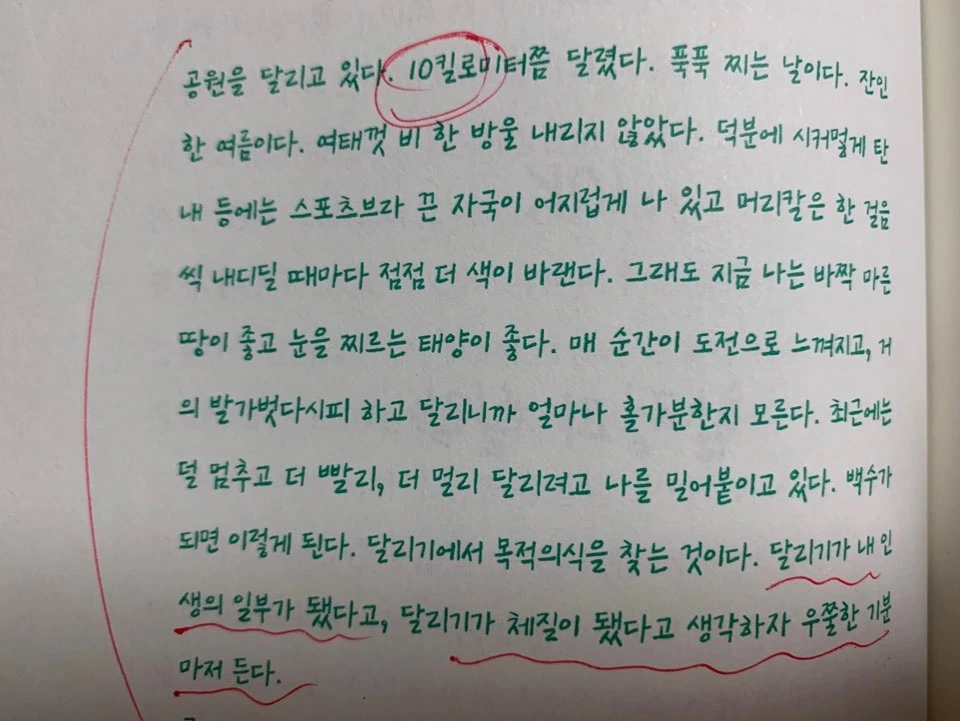 공원을 달리고 있다. 10킬로미터쯤 달렸다. 푹푹 찌는 날이다. 잔인
한 여름이다. 여태껏 비 한 방울 내리지 않았다. 덕분에 시커멓게 탄
내 등에는 스포츠브라 끈 자국이 어지럽게 나 있고 머리칼은 한 걸음
씩 내디딜 때마다 점점 더 색이 바랜다. 그래도 지금 나는 바짝 마른
땅이 좋고 눈을 찌르는 태양이 좋다. 매 순간이 도전으로 느껴지고, 거
의 발가벗다시피 하고 달리니까 얼마나 홀가분한지 모른다. 최근에는
덜 멈추고 더 빨리, 더 멀리 달리려고 나를 밀어붙이고 있다. 백수가
되면 이렇게 된다. 달리기에서 목적의식을 찾는 것이다. 달리기가 내 인
생의 일부가 됐다고, 달리기가 체질이 됐다고 생각하자 우쭐한 기분
마저 든다.